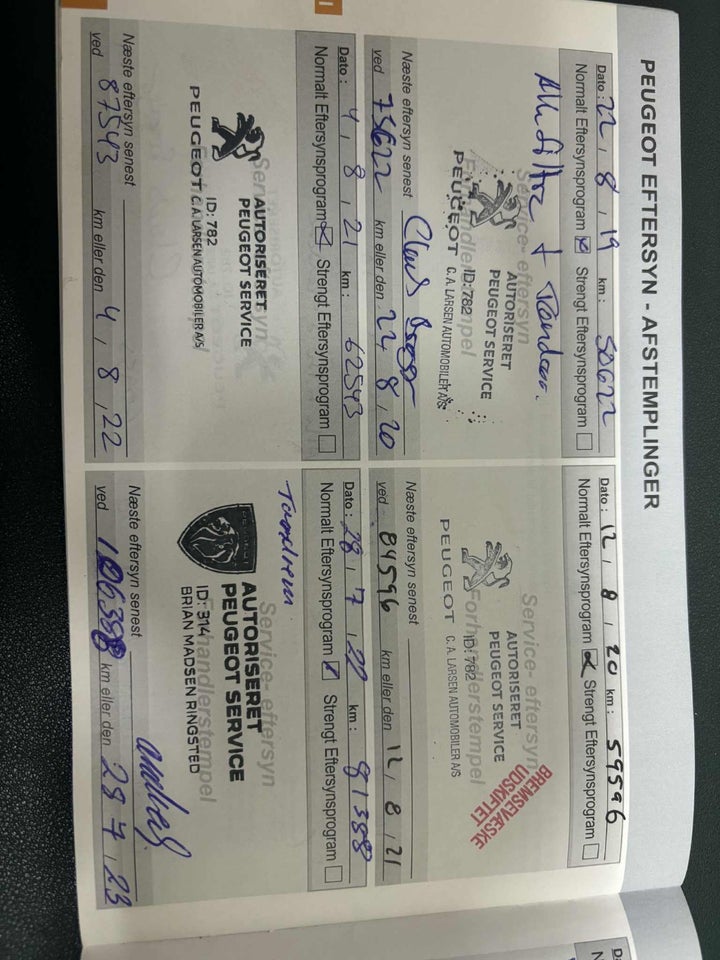 PEUGEOT EFTERSYN - AFSTEMPLINGER
Dato : 22 , 8 , 19 km : 50622
Normalt Eftersynsprogram Strengt Eftersynsprogram
Service- eftersyn
Forhandlerstempel
AUTORISERET
PEUGEOT SERVICE
ID:782
PEUGEOT C. A. LARSEN AUTOMOBILER A/S
Næste eftersyn senest
ved 75622 km eller den 22 8 , 20
Dato : 12 , 8 , 20 km : 59596
Normalt Eftersynsprogram Strengt Eftersynsprogram
Service- eftersyn
Forhandlerstempel
AUTORISERET
PEUGEOT SERVICE
ID:782
PEUGEOT C. A. LARSEN AUTOMOBILER A/S
BREMSEVÆSKE
UDSKIFTET
Næste eftersyn senest
ved 84596 km eller den 12 , 8 , 21
Dato : 4 , 8 , 21 km : 62543
Normalt Eftersynsprogram Strengt Eftersynsprogram
Service- eftersyn
AUTORISERET
PEUGEOT SERVICE
ID: 782
PEUGEOT C. A. LARSEN AUTOMOBILER A/S
Næste eftersyn senest
ved 87543 km eller den 4 , 8 , 22
Dato : 28 , 7 , 22 km : 81388
Normalt Eftersynsprogram Strengt Eftersynsprogram
Tandrem
Service- eftersyn
Forhandlerstempel
AUTORISERET
PEUGEOT SERVICE
ID: 314
BRIAN MADSEN RINGSTED
Næste eftersyn senest
ved 106388 km eller den 28 7 , 23